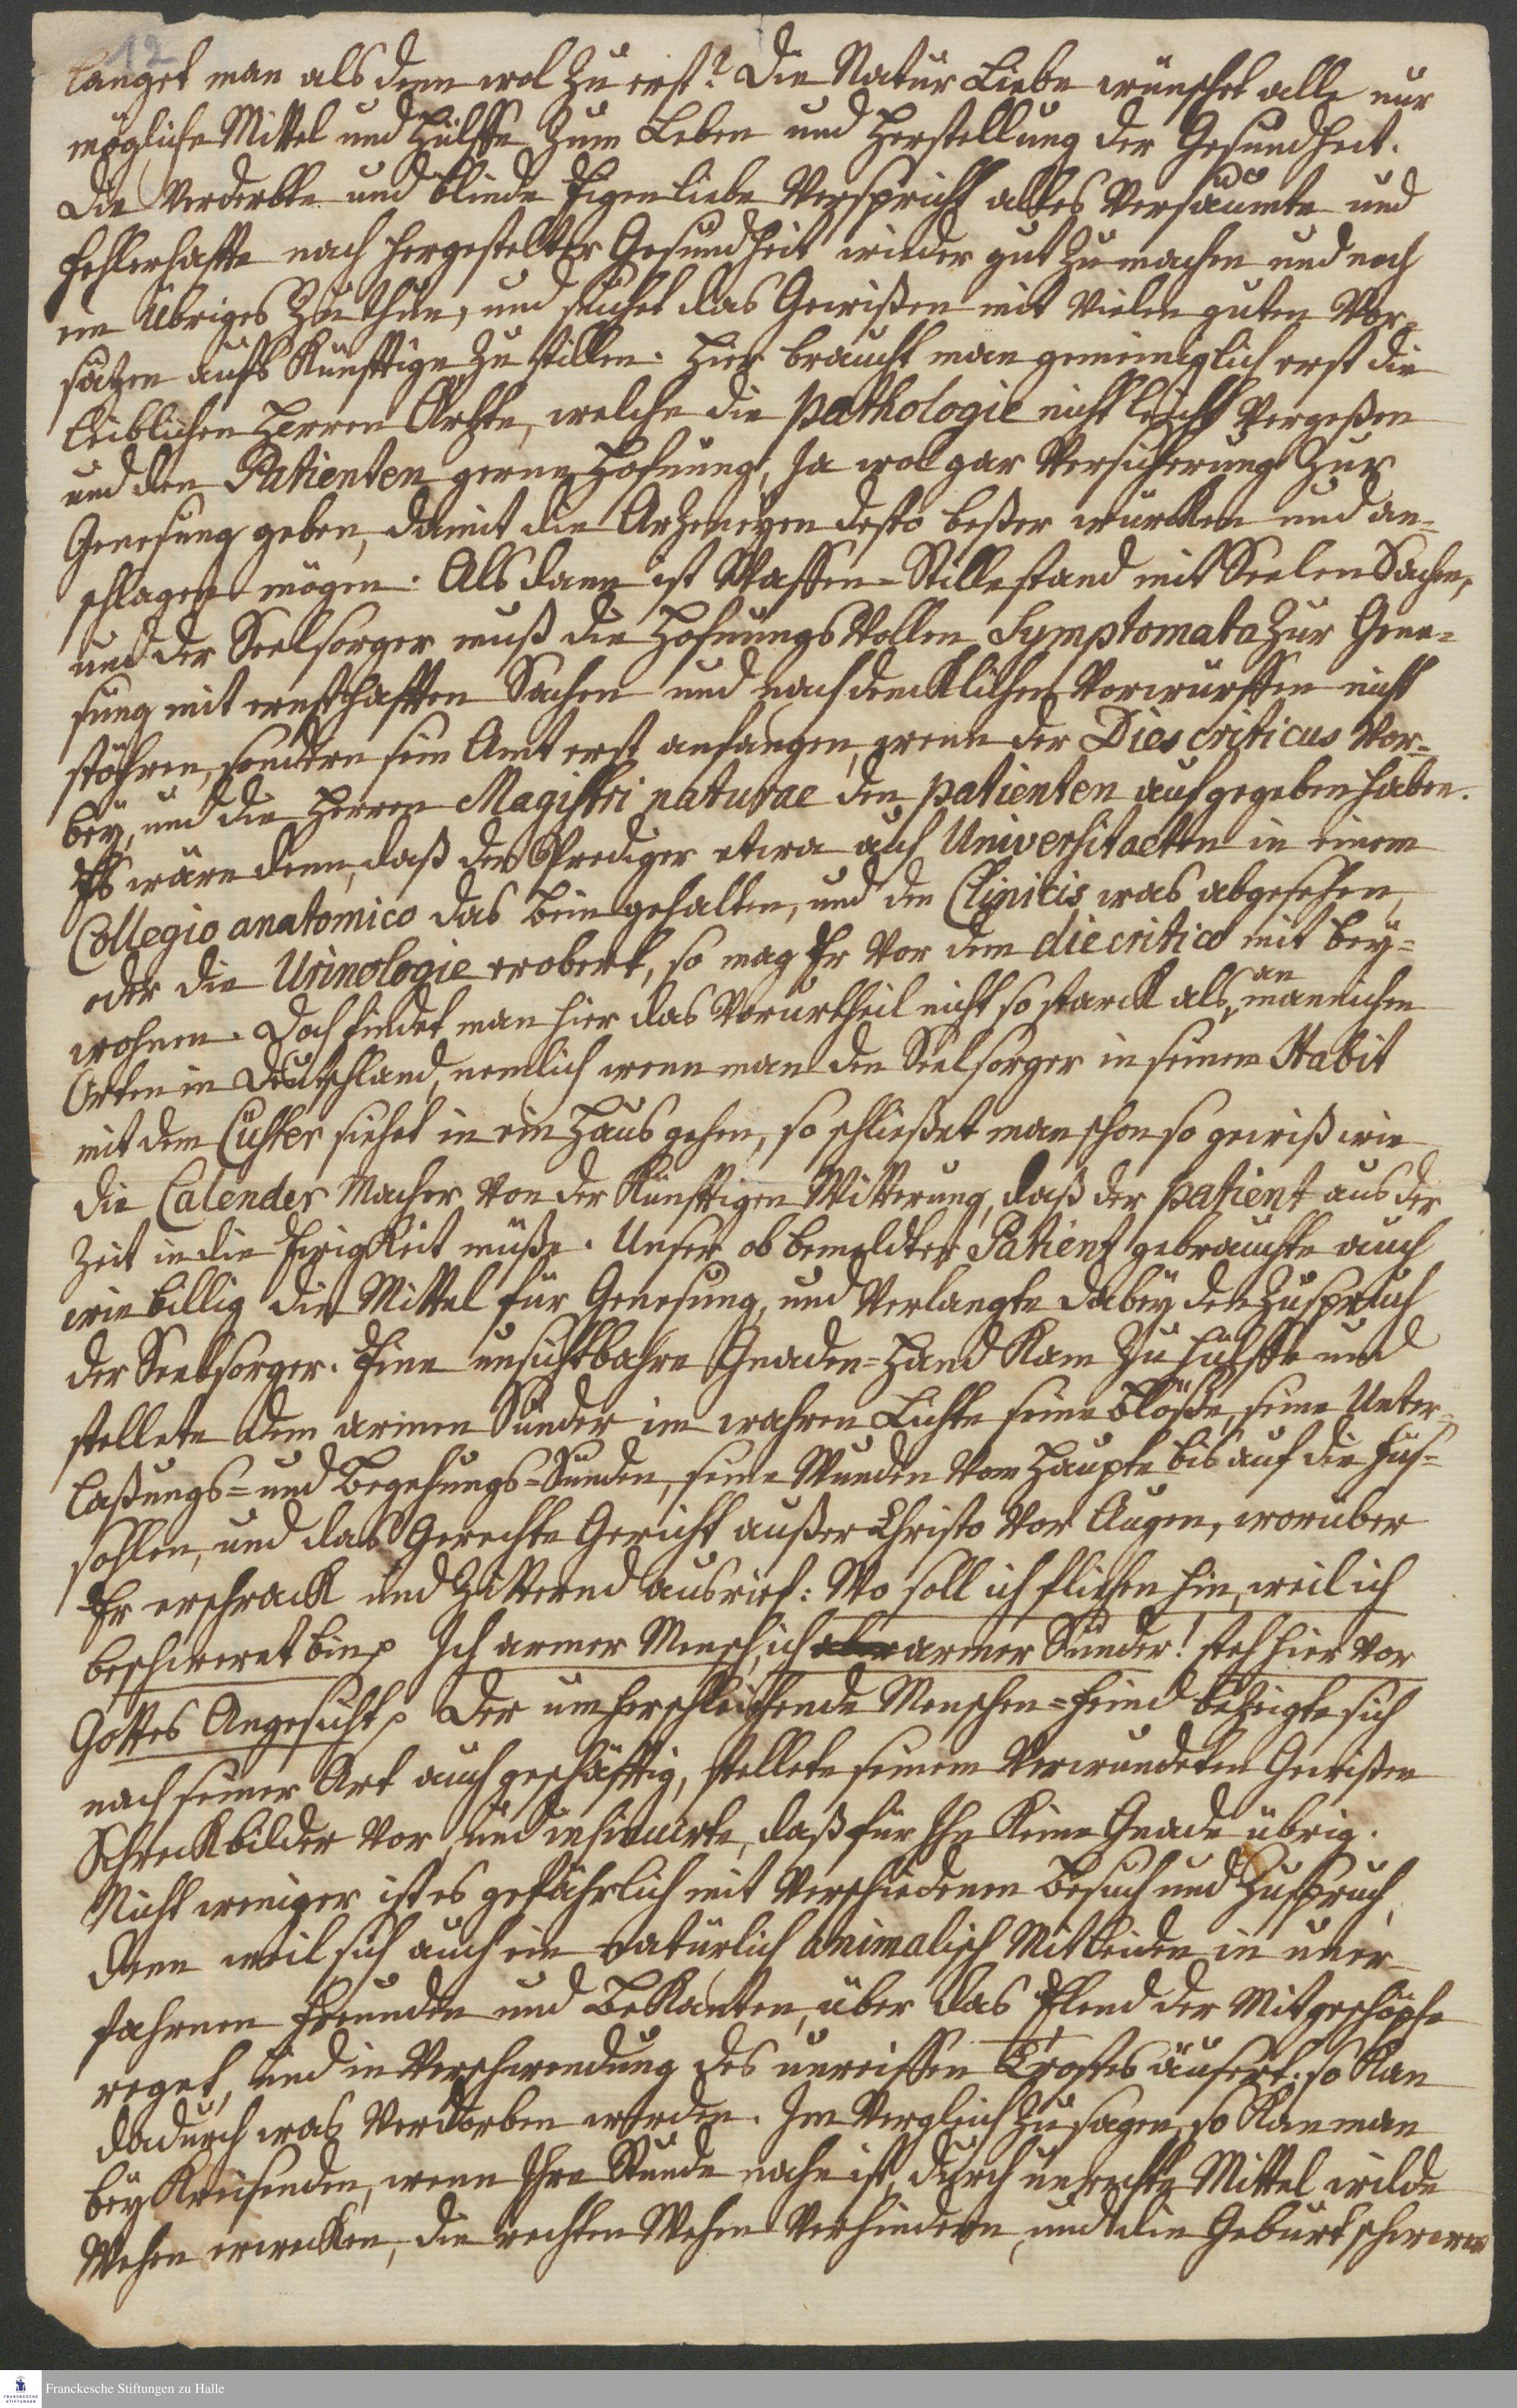 12
langet man als denn wol zu erst? Die Natur Liebe wünschet alle nur
mögliche Mittel und Hülffe zum Leben und Herstellung der Gesundheit.
Die verderbte und blinde Eigenliebe verspricht alles versäumte und
fehlerhaffte nach hergestelter Gesundheit wieder gut zu machen und noch
ein übriges zu thun, und suchet das Gewißen mit vielen guten Vor-
sätzen aufs Künfftige zu stillen. Hier braucht man gemeiniglich erst die
leiblichen Herren Ärtzte, welche die pathologie nicht leicht vergeßen
und den Patienten gerne Hofnung, ja wol gar Versicherung zur
Genesung geben, damit die Artzeneyen desto beßer würcken und an-
schlagen mögen. Als dann ist Waffen-Stillestand mit Seelen Sachen,
und der Seelsorger muß die Hofnungs vollen Symptomata zur Gene-
sung mit ernsthafften Sachen und nachdencklichen Vorwürffen nicht
stöhren, sondern sein Amt erst anfangen, wenn der Dies criticus vor-
bey, und die Herren Magistri naturae den patienten aufgegeben haben.
Es wäre denn, daß der Prediger etwa auf Universitaeten in einem
Collegio anatomico das Bein gehalten, und den Clinicis was abgesehen,
oder die Urinologie erobert, so mag Er vor dem die critico mit bey-
wohnen. Doch findet man hier das Vorurtheil nicht so starck als an mannichen
Orten in Deutschland, nemlich wenn man den Seelsorger in seinem Habit
mit dem Cüster siehet in ein Haus gehen, so schließet man schon so gewiß wie
die Calender Macher von der Künfftigen Witterung, daß der patient aus der
Zeit in die Ewigkeit müße. Unser ob bemeldter Patient gebrauchte auch
wie billig die Mittel für Genesung, und verlangte dabey den Zuspruch
der Seelsorger. Eine unsichtbahre Gnaden-Hand kam zu Hülffe und
stellete dem armen Sünder im wahren Lichte seine Blöße, seine Unter-
laßungs- und Begehungs-Sünden, seine Wunden vom Haupte bis auf die Fus-
sohlen, und das Gerechte Gericht außer Christo vor Augen, worüber
Er erschrack und zitternd ausrief: Wo soll ich fliehen hin, weil ich
beschweret bin Ich armer Mensch, ich armer Sünder! steh hier vor
Gottes Angesicht Der umherschleichende Menschen-Feind bezeigte sich
nach seiner Art auch geschäfftig, stellete seinem verwundeten Gewißen
Schreckbilder vor, und insinuirte, daß für Ihn keine Gnade übrig.
Nicht weniger ist es gefährlich mit verschiedenem Besuch und Zuspruch,
denn weil sich auch ein natürlich animalisch Mitleiden in uner-
fahrnen Freunden und Bekanten, über das Elend der Mitgeschöpfe
reget, und in Verschwendung des unreiffen Trostes äusert: so kan
dadurch was verdorben werden. Im Vergleich zu sagen, so kan man
bey Kreisenden, wenn Ihre Stunde nahe ist, durch unrechte Mittel wilde
Wehen erwecken, die rechten Wehen verhindern, und die Geburt schwerer
Franckesche Stiftungen zu Halle